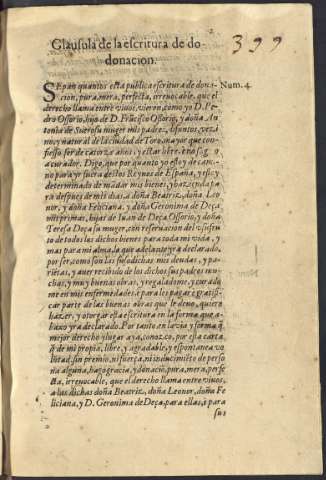 Glausula de la escritura de do
donacion.
399
Num. 4.
SEpan quantos esta publica escritura de dona-
cion, pura, mera, perfecta, irreuocable, que el
derecho llama entre viuos, vieren, como yo D. Pe
dro Ossorio, hijo de D. Frãcisco Ossorio, y doña An
tonia de                      muger mis padres, difuntos, vezi
no y natural de la ciudad de Toro, mayor que con-
fiesso ser de catorze años, y estar libre, no sugeto
a curador. Digo, que por quanto yo estoy de cami-
no para yr fuera destos Reynos de España, y estoy
determinado de mãdar mis bienes, y hazienda pa
ra despues de mis dias a doña Beatriz, doña Leo
nor, y doña Feliciana, y doña Geronima de Deça
mis primas, hijas de Iuan de Deça Ossorio, y doña
Teresa Deça su muger, con reseruacion del vsufru
to de todos los dichos bienes para toda mi vida, y
mas para mi alma, lo que adelante yrà declarado,
por ser, como son las susodichas mis deudas, y pa-
riẽtas, y auer recibido de los dichos sus padres mu-
chas, y muy buenas obras, y regaladome, y curado
me en mis enfermedades: e para les pagar e gratifi-
car parte de las buenas obras que les deuo, quiero
hazer, y otorgar esta escritura en la forma que a-
baxo yrà declarado. Por tanto en la via y forma q̃
mejor derecho y lugar aya, conozco, por esta carta
q̃ de mi propia, libre, y agradable, y espontanea vo
lũtad, sin premio, ni fuerça, ni induzimiẽto de perso
na alguna, hago gracia, y donaciõ, pura, mera, perfe
cta, irreuocable, que el derecho llama entre viuos,
a las dichas doña Beatriz, doña Leonor, doña Fe
liciana, y D. Geronima de Deça, para ellas, i para
sus